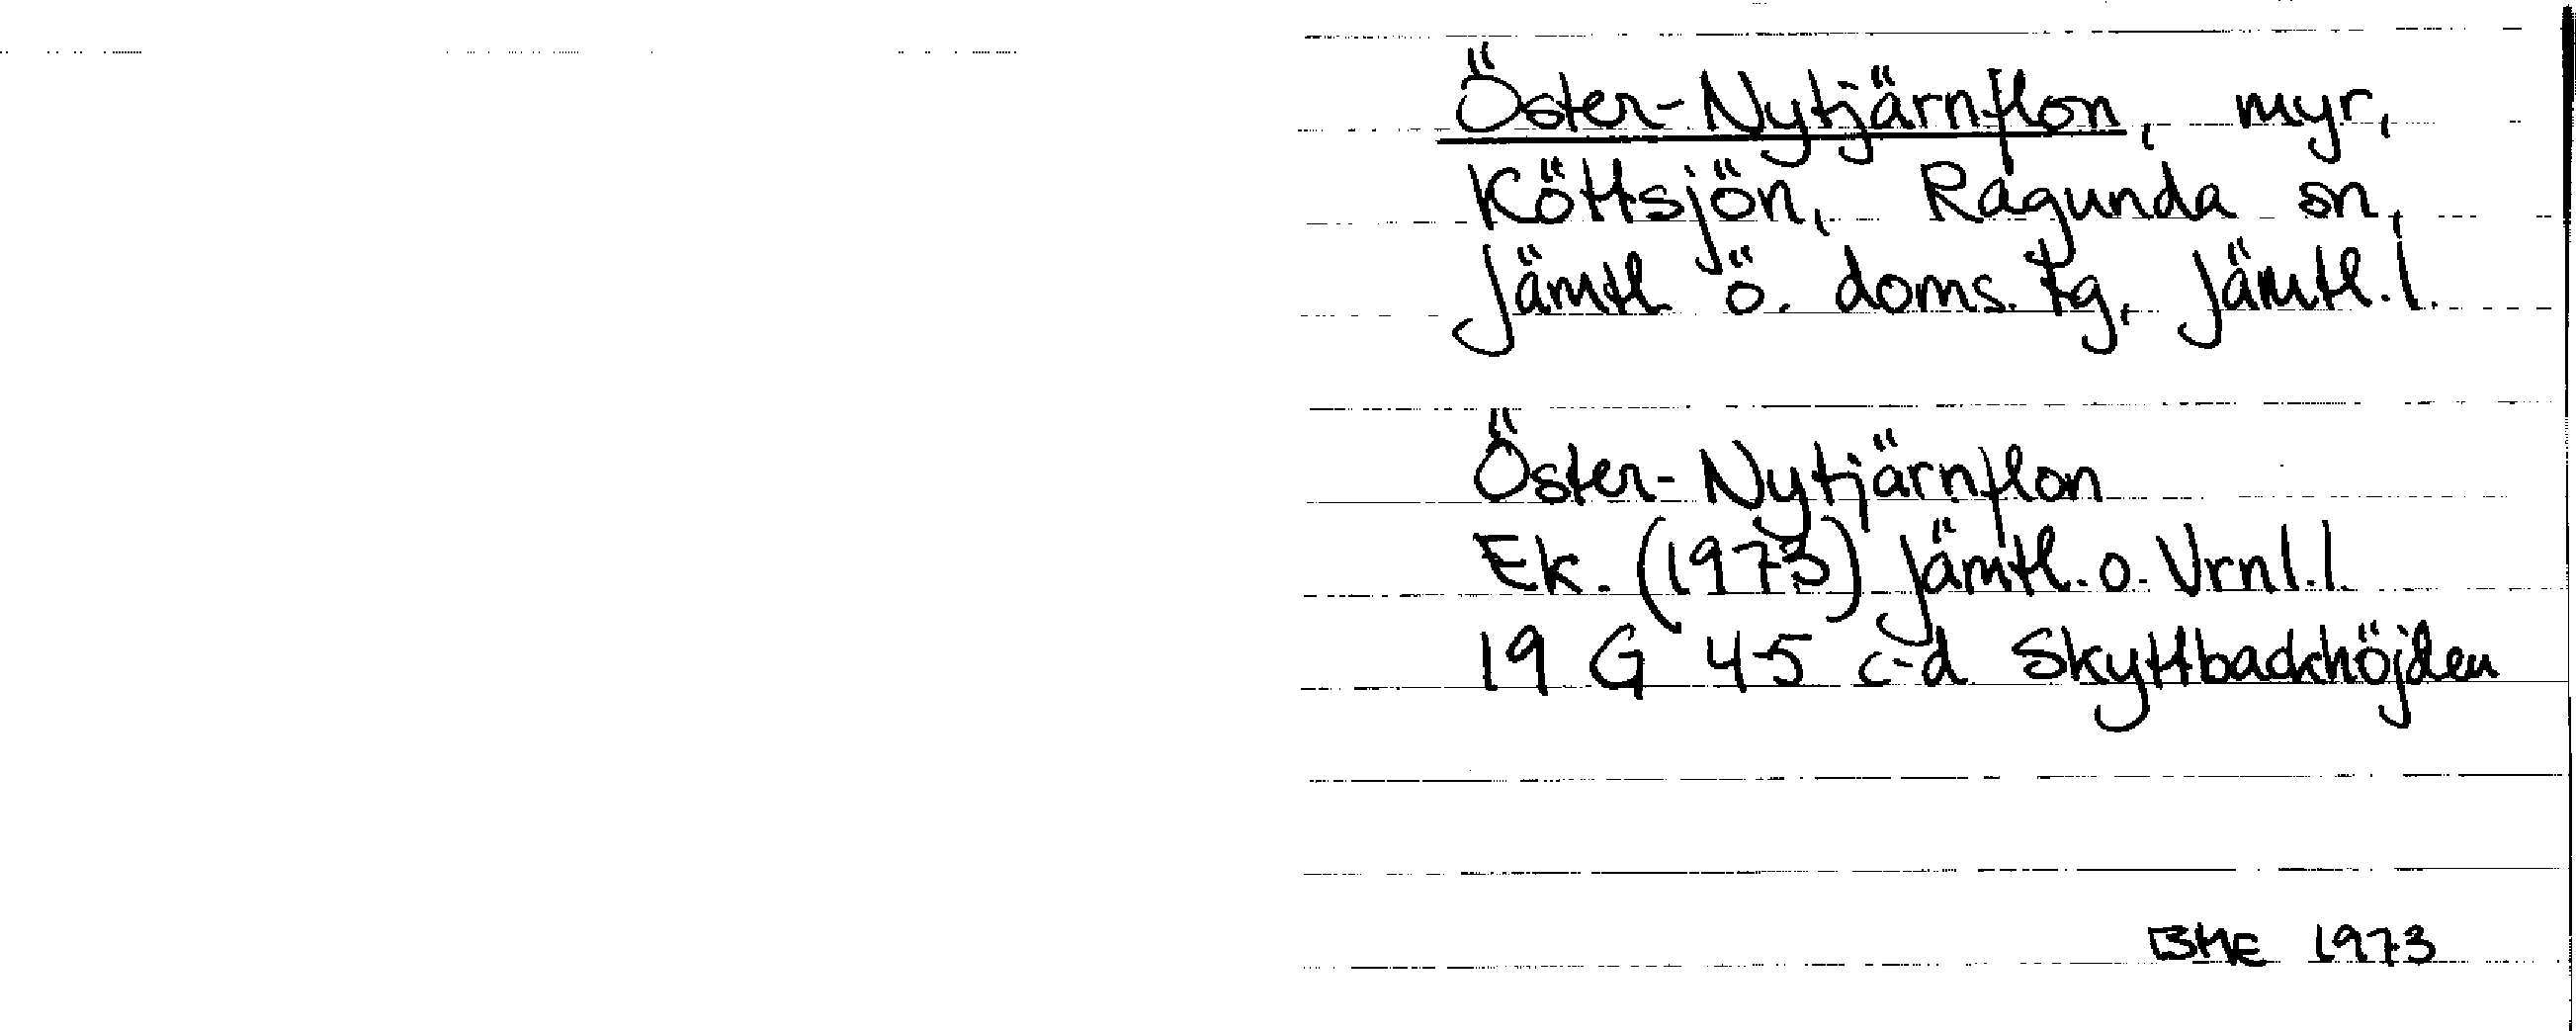 Öster-Nytjärnflon, myr,
Köttsjön, Ragunda sn,
Jämtl ö. doms. tg, Jämtl. l.
Öster-Nytjärnflon
Ek. (1973) Jämtl. o. Vrnl. l.
19 G 4-5 c-d Skyttbackhöjden
BME 1973